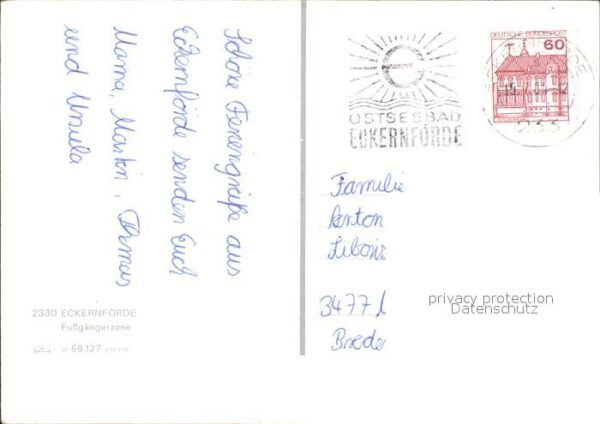 Schöne Feriengrüße aus
Eckernförde senden Euch
Mama, Martin, Thomas
und Ursula
2330 ECKERNFÖRDE
Fußgängerzone
68.127
DEUTSCHE BUNDESPOST
60
OSTSEEBAD
ECKERNFÖRDE
233
Familie
Anton
3477
Brede
privacy protection
Datenschutz